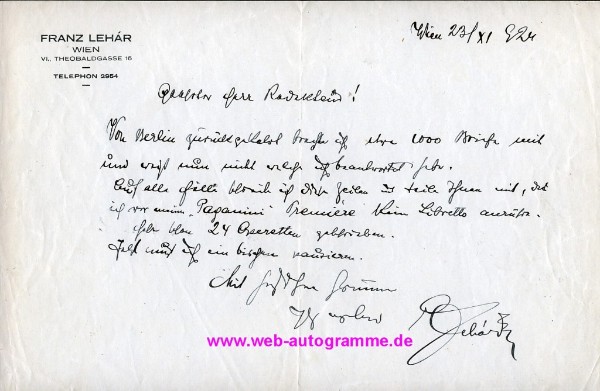 FRANZ LEHÁR
WIEN
VI., THEOBALDGASSE 16
TELEPHON 2954
Wien 23/XI 924
Geehrter Herr
Von Berlin zurückgekehrt brachte ich etwa 1000 Briefe mit
und weiß nun nicht welche ich beantwortet habe.
Auf alle Fälle schreib ich diese Zeilen u teile Ihnen mit, daß
ich vor meiner "Paganini" Premiere kein Libretto anrühre.
Habe schon 24 Operetten geschrieben.
Jetzt muß ich ein bischen pausieren.
Mit
Ihr ergebener Lehár
www.web-autogramme.de